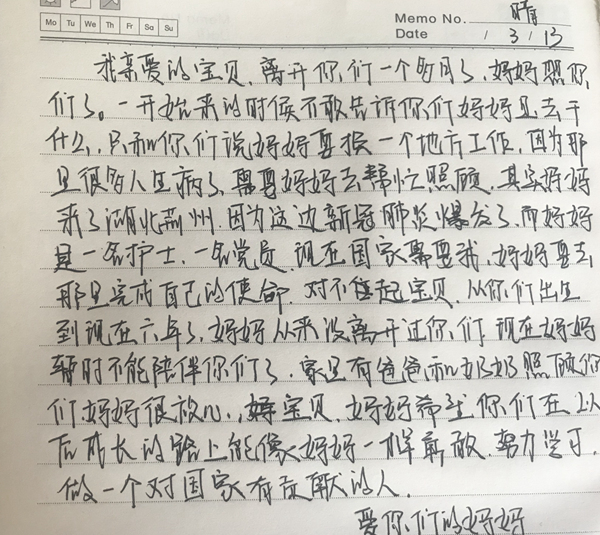 晴
Memo No.
Mo Tu We Th Fr Sa Su
Date / 3 / 13
我亲爱的宝贝、离开你们一个多月了、妈妈想你
们了。一开始来的时候不敢告诉你们妈妈是去干
什么,只和你们说妈妈要换一个地方工作,因为那
里很多人生病了、需要妈妈去帮忙照顾、其实妈妈
来了湖北荆州、因为这边新冠肺炎爆发了、而妈妈
是一名护士、一名党员、现在国家需要我、妈妈要去
那里完成自己的使命、对不起宝贝、从你们出生
到现在六年了、妈妈从来没离开过你们、现在妈妈
暂时不能陪伴你们了、家里有爸爸和奶奶照顾你
们妈妈很放心、宝贝、妈妈希望你们在以
后成长的路上能像妈妈一样勇敢、努力学习、
做一个对国家有贡献的人、
爱你们的妈妈